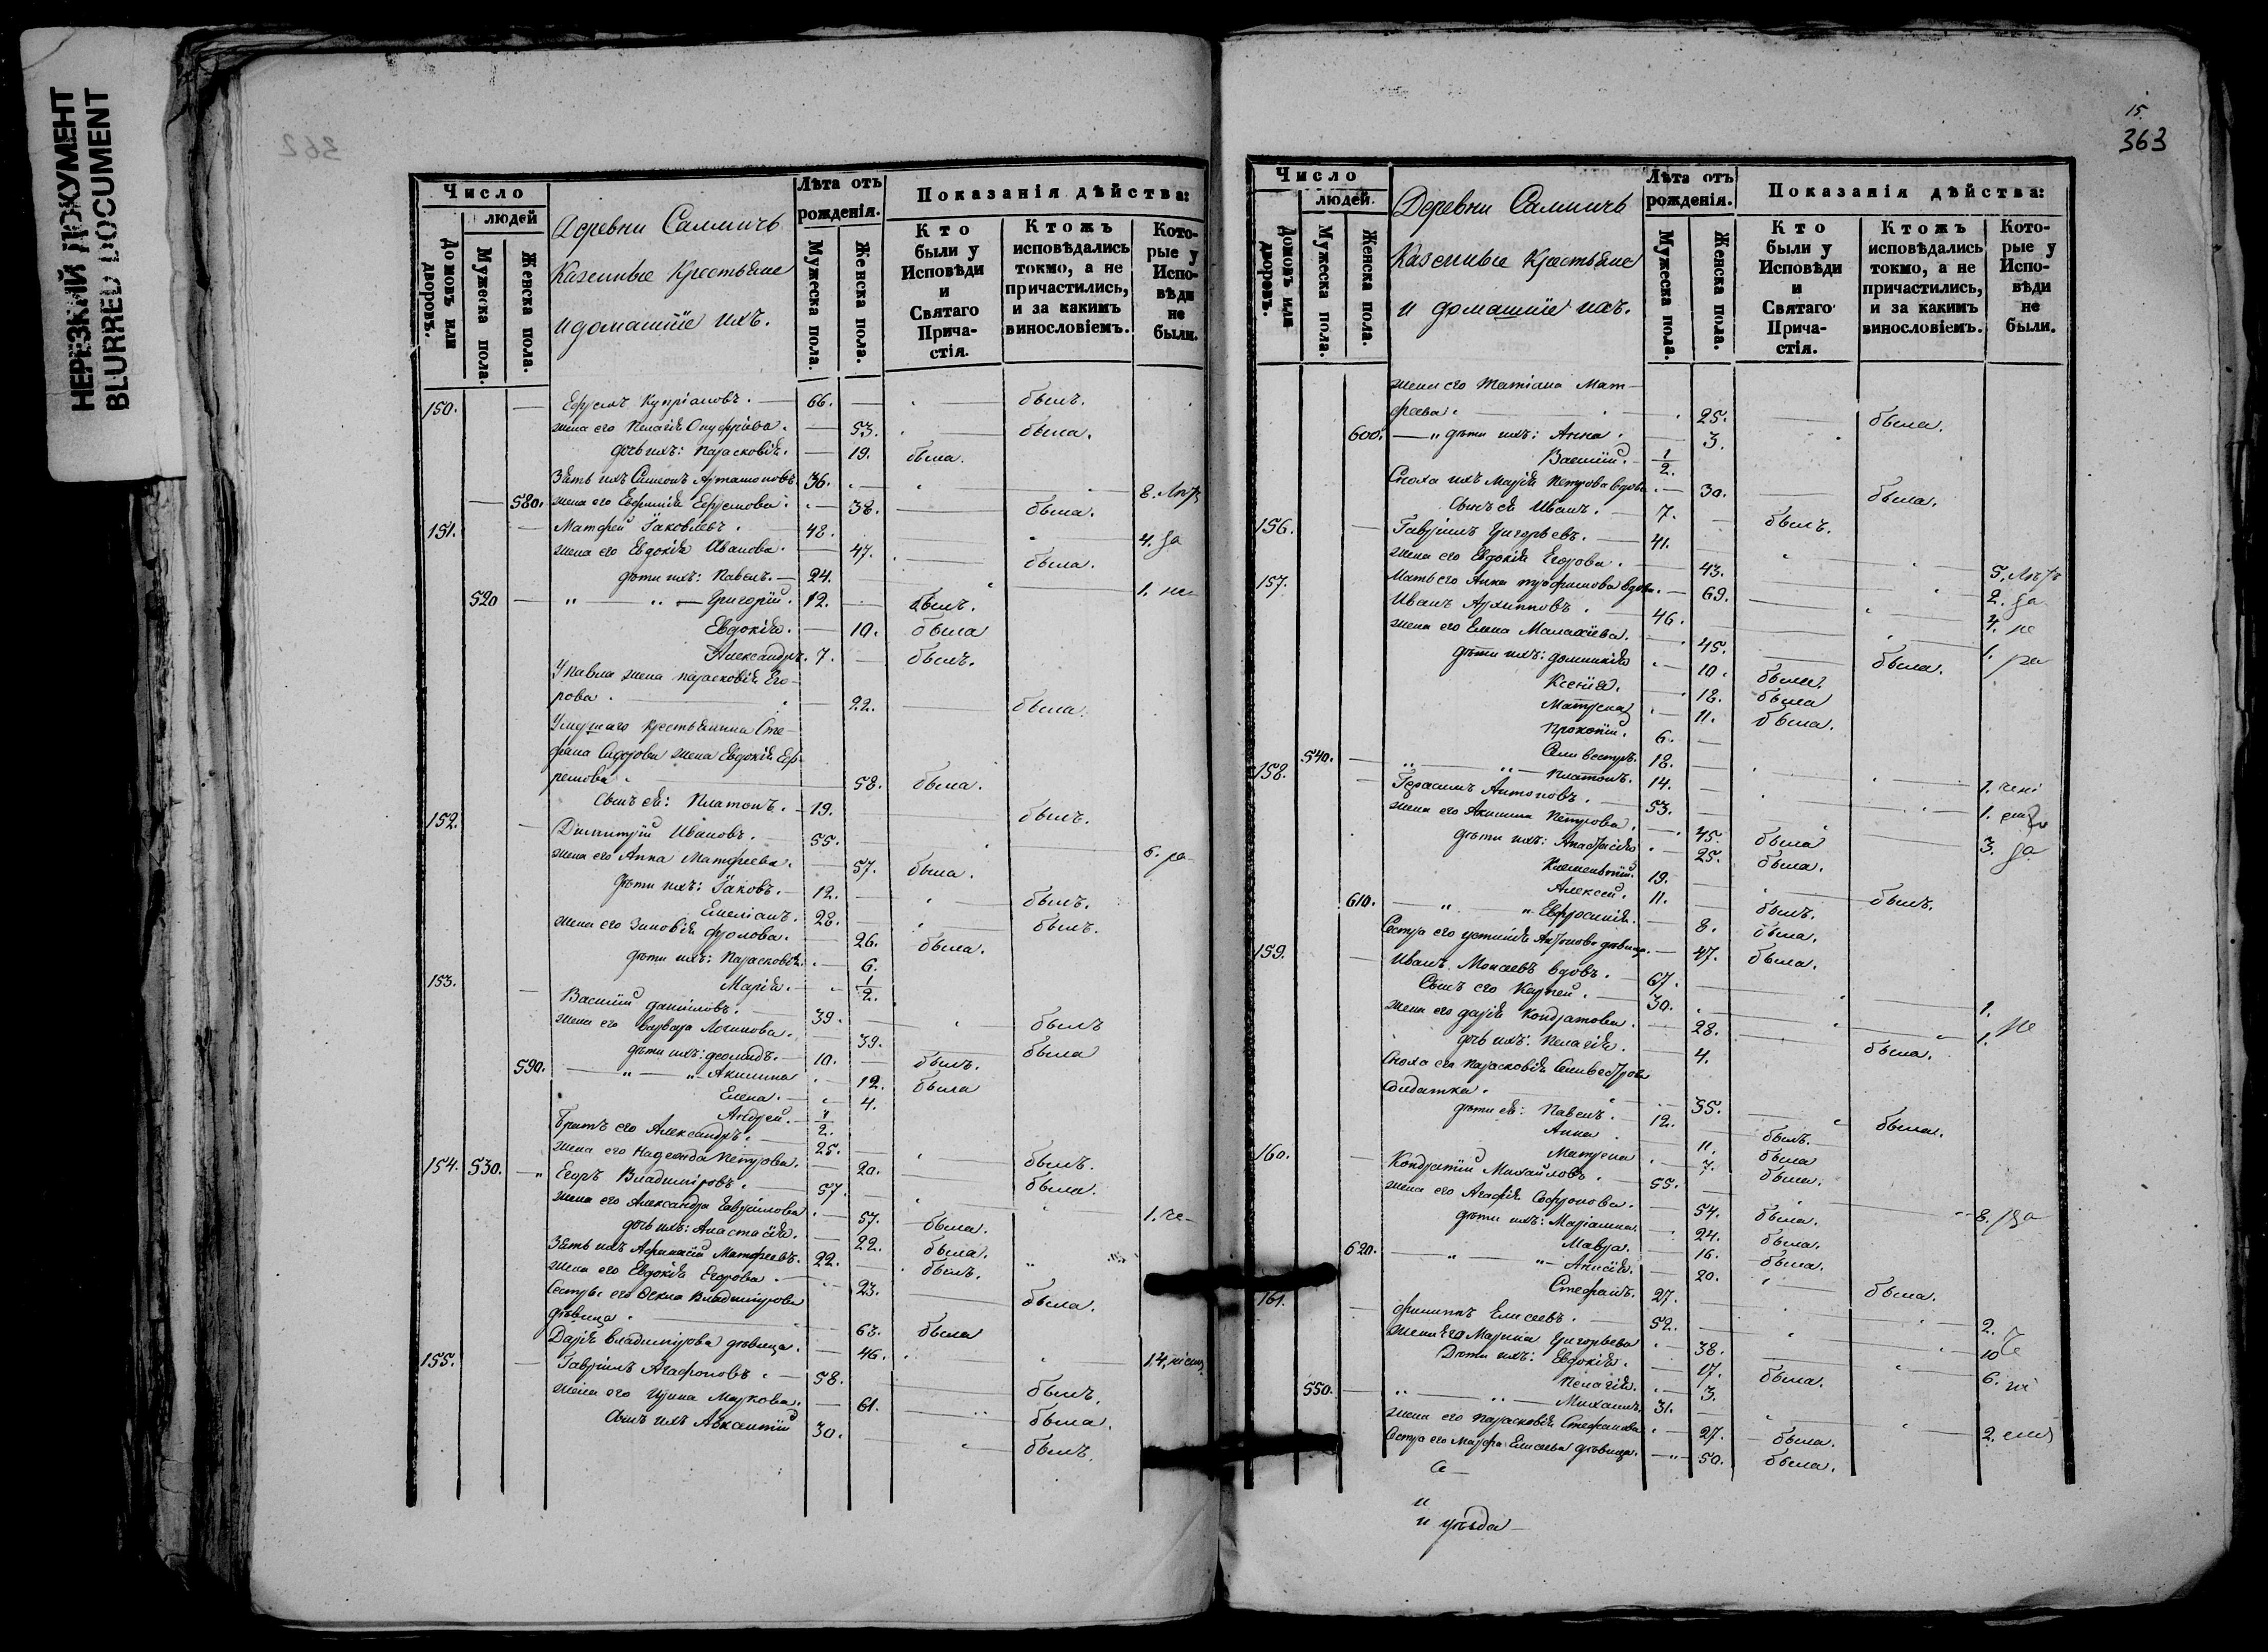 НЕРЕЗКИЙ ДОКУМЕНТ
BLURRED DOCUMENT
362
Число
людей
Домовъ или дворовъ.
Мужеска пола.
Женска пола.
Деревни Салмичъ
Казенные Крестьяне
и домашніе ихъ.
Лѣта отъ рожденія.
Мужеска пола.
Женска пола.
Показанія дѣйства:
Кто были у Исповѣди и Святаго Причастія.
Ктожъ исповѣдались токмо, а не причастились, и за какимъ винословіемъ.
Которые у Исповѣди не были.
150. — Ефремъ Купріановъ. — 66. — былъ.
жена его Пелагія Онуфріева. — 53. — была.
дочь ихъ: Парасковія. — 19. была.
Зять ихъ Симеонъ Артамоновъ 36. — 8. лѣтъ
580. жена его Евфимія Ефремова. — 38. — была.
151. — Матфей Іаковлевъ. — 48. — 4. да
жена его Евдокія Иванова. — 47. — была.
дѣти ихъ: Павелъ. — 24. — 1. не
520 — " — " — Григорій. 12. — былъ.
Евдокія. — 10. была
Александръ. 7. — былъ.
У Павла жена Парасковія Его-
рова. — 22. — была.
Умершаго крестьянина Сте-
фана Сидорова жена Евдокія Еф-
ремова. — 58. была.
Сынъ ея: Платонъ. — 19. — былъ.
152. — Димитрій Ивановъ. — 55. — 6. ра
жена его Анна Матфеева. — 57. была.
дѣти ихъ: Іаковъ. — 12. — былъ.
Емеліанъ. 28. — былъ.
жена его Зиновія Фролова. — 26. была.
дѣти ихъ: Парасковія. — 6.
Марія. — 1/2.
153. — Василій Даниловъ. — 39. — былъ
жена его Варвара Логинова. — 39. — была
дѣти ихъ: Деомидъ. — 10. — былъ.
590. — " — " Акилина — 12. была
Елена. — 4.
Андрей. — 1/2.
Братъ его Александръ. — 25. — былъ.
жена его Надежда Петрова. — 20. — была.
154. 530. — " Егоръ Владиміровъ. — 57. — 1. че-
жена его Александра Гавриілова — 57. — была.
дочь ихъ: Анастасія. — 22. — была.
Зять ихъ Афанасій Матфеевъ. 22. — былъ.
жена его Евдокія Егорова. — 23. — была.
Сестры его Фекла Владимірова
дѣвица. — 63. была
Дарія Владимірова дѣвица. — 46. — 14.
155. — Гавріилъ Агафоновъ. — 58. — былъ.
жена его Ирина Маркова. — 61. — была.
Сынъ ихъ Авксентій 30. — былъ.
15.
363
Число
людей.
Домовъ или дворовъ.
Мужеска пола.
Женска пола.
Деревни Салмичъ
Казенные Крестьяне
и домашніе ихъ.
Лѣта отъ рожденія.
Мужеска пола.
Женска пола.
Показанія дѣйства:
Кто были у Исповѣди и Святаго Причастія.
Ктожъ исповѣдались токмо, а не причастились, и за какимъ винословіемъ.
Которые у Исповѣди не были.
жена его Татіана Мат-
феева. — 25. — была.
600. — " дѣти ихъ: Анна. — 3.
Василій. — 1/2.
Сноха ихъ Марія Петрова вдова. — 30. — была.
Сынъ ея Иванъ. — 7. — былъ.
156. — Гавріилъ Григорьевъ. — 41. — 5. лѣтъ
жена его Евдокія Егорова. — 43. — 2. да
Мать его Анна Трофимова вдова. — 69. — 4. не
157. Иванъ Архиповъ. — 46. — 1. ра
жена его Елена Малахіева. — 45. — была.
дѣти ихъ: Домникія — 10. была.
Ксенія. — 18. была
Матрена — 11. была.
Прокопій. 6. —
Селивестръ. 18. — 1.
540. — " — " — Платонъ. 14. — 1.
158. — Герасимъ Антоновъ. — 53. — 3. да
жена его Акилина Петрова. — 45. была
дѣти ихъ: Анастасія — 25. была.
Климентій. 19. — былъ.
Алексей. 11. — былъ.
610. — " — " Евфросинія. — 8. была.
Сестра его Устинія Антонова дѣвица. — 47. была.
159. — Иванъ Моисеевъ вдовъ. — 67. — 1.
Сынъ его Карпей. — 30. — 1. не
жена его Дарія Кондратова. — 28. — была.
дочь ихъ: Пелагія. — 4.
Сноха его Парасковія Селивестрова
солдатка. — 35. — была.
дѣти ея: Павелъ. — 12. — былъ.
Анна. — 11. была
Матрена — 7. была.
160. — Кондратій Михайловъ. — 55. — 8.
жена его Агафія Софронова. — 54. была.
дѣти ихъ: Маріамна. — 24. была.
Мавра. — 16. была.
620. — " — " Анисія. — 20. — была.
Стефанъ. 27. — 2.
161. — Филиппъ Елисеевъ. — 52. — 10
жена его Марина Григорьева — 38. — 6.
Дѣти ихъ: Евдокія. — 17. была.
Пелагія. — 3.
550. " — " — Михаилъ. 31. — 2.
жена его Парасковія Стефанова — 27. была.
Сестра его Марфа Елисеева дѣвица. — " — 50. была.